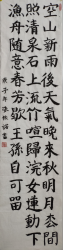 空山新雨後天氣晚來秋明月松間
照清泉石上流竹喧歸浣女蓮動下
漁舟隨意春芳歇王孫自可留